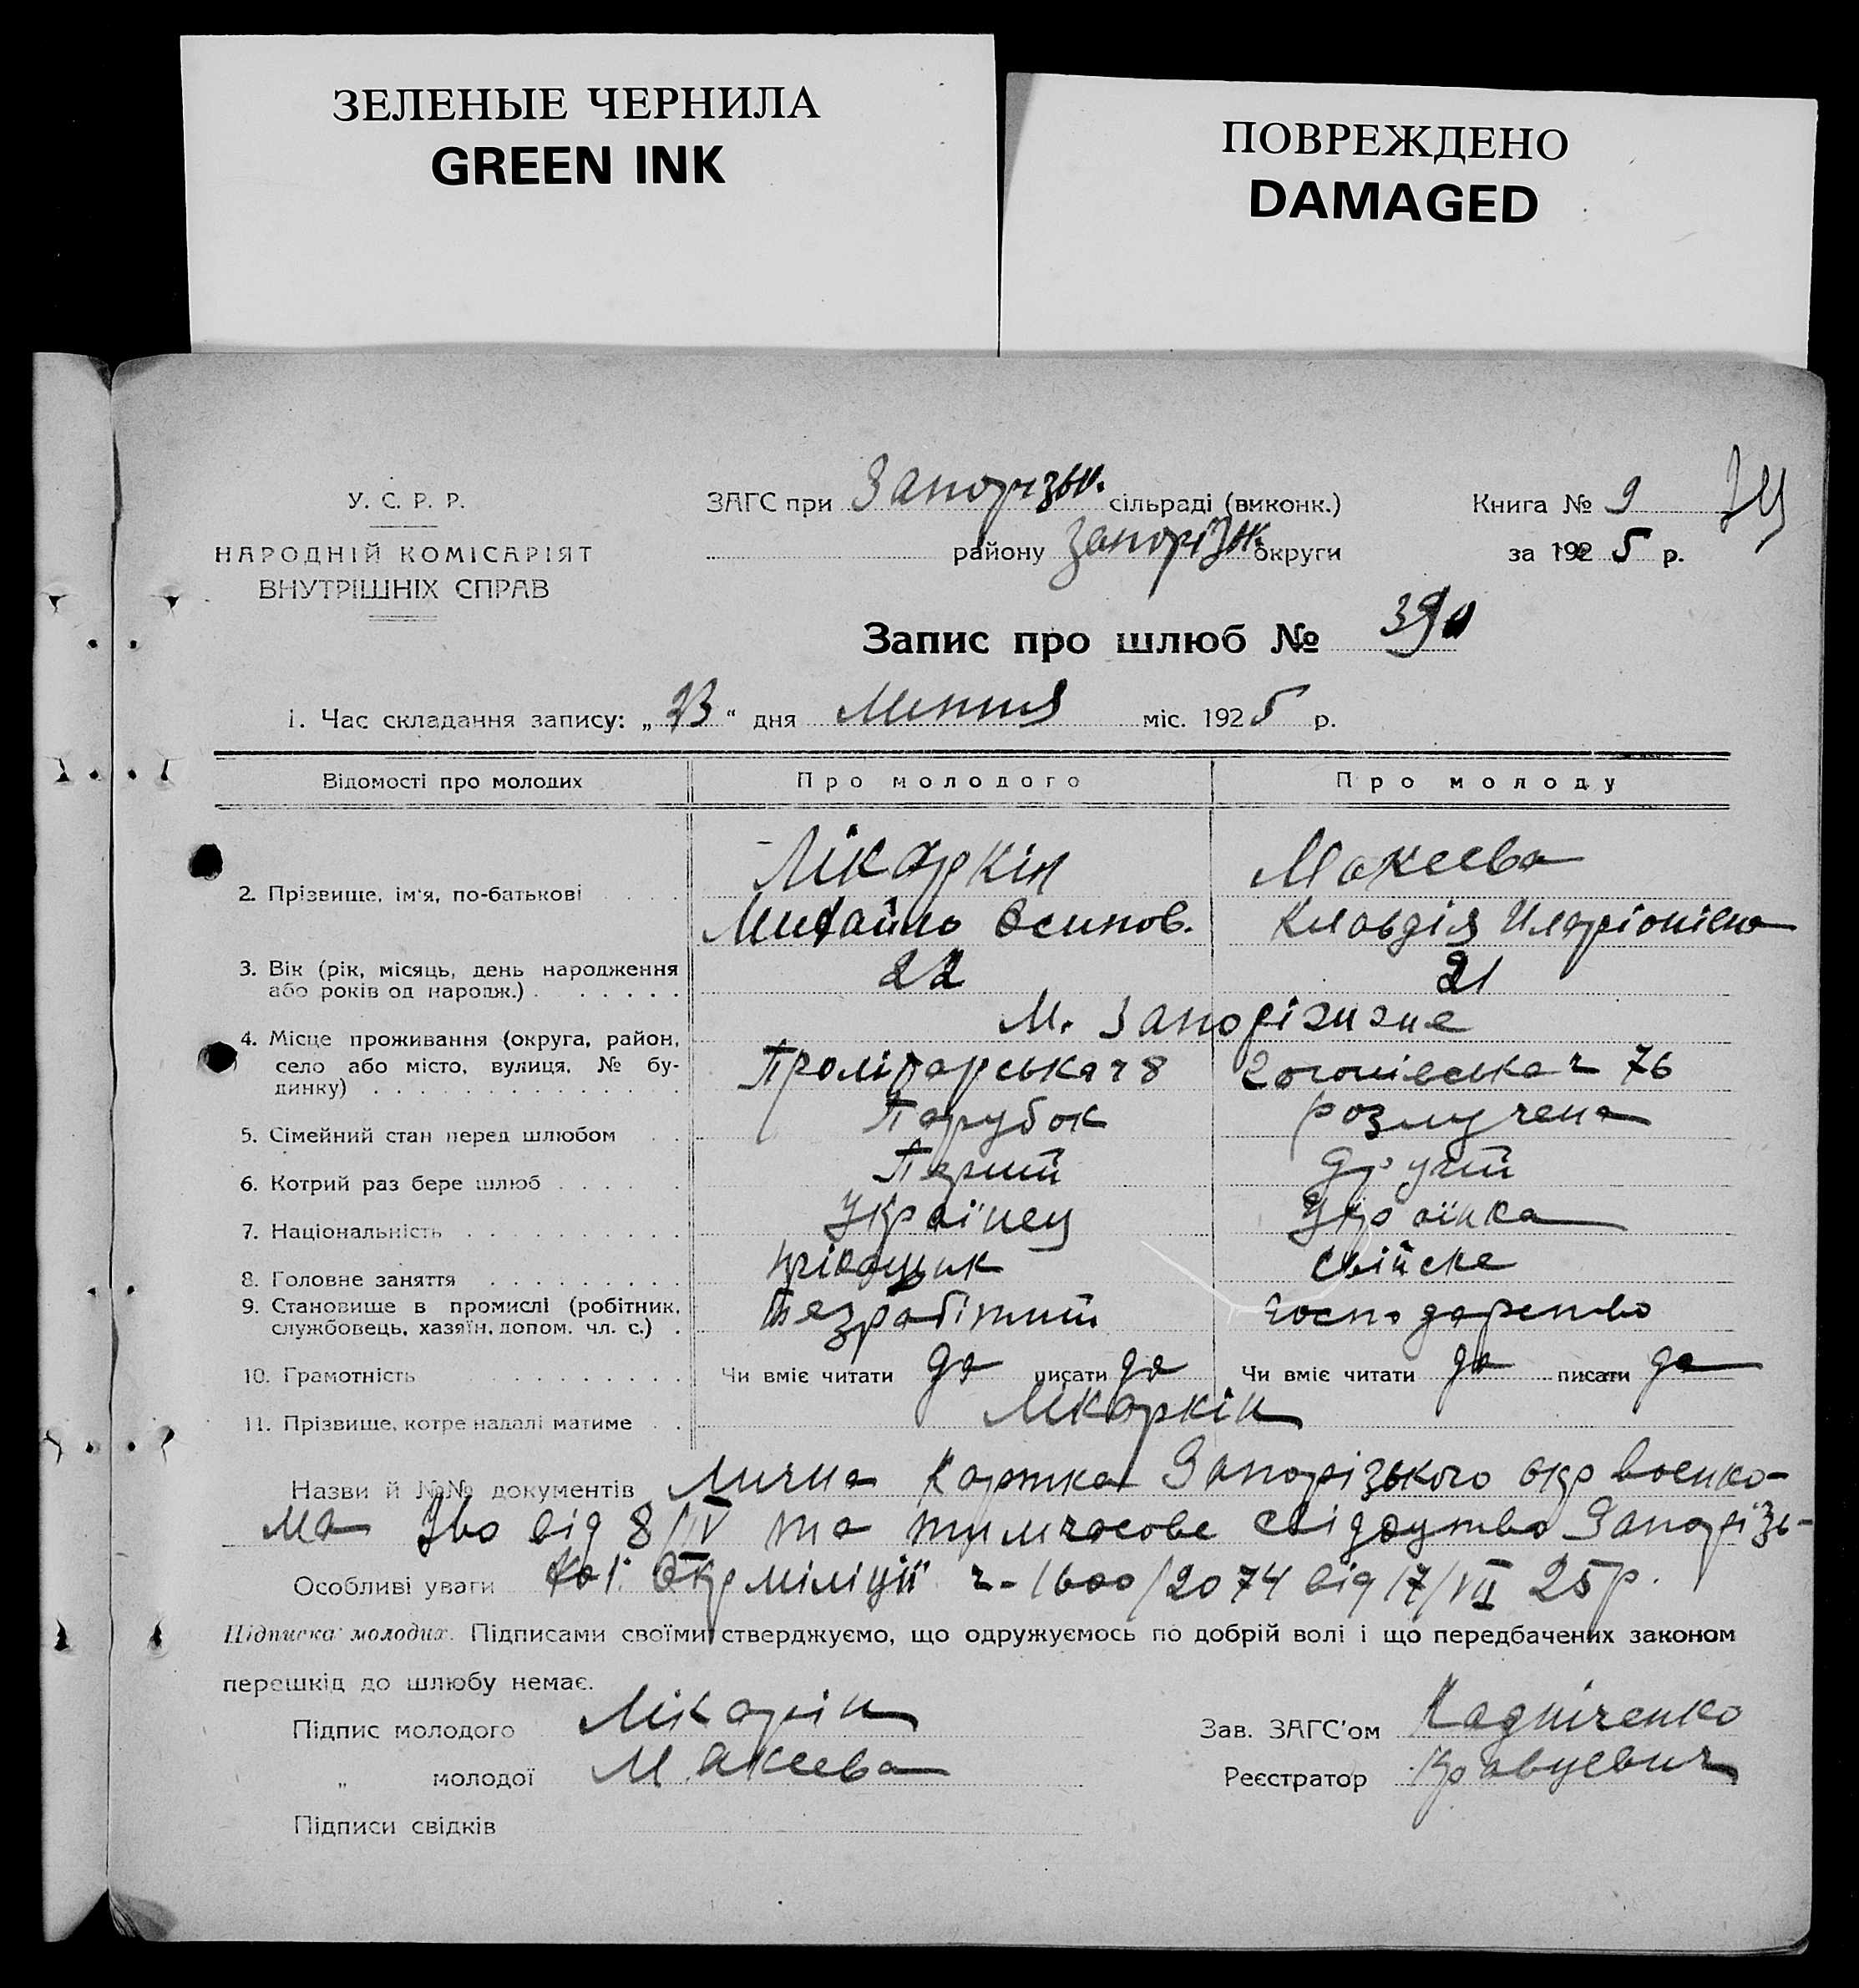 ЗЕЛЕНЫЕ ЧЕРНИЛА
GREEN INK
ПОВРЕЖДЕНО
DAMAGED
У. С. Р. Р.
НАРОДНІЙ КОМІСАРІЯТ
ВНУТРІШНІХ СПРАВ
ЗАГС при Запорізьк. сільраді (виконк.)
району Запорізьк. округи
Книга № 9
за 1925 р.
Запис про шлюб № 390
1. Час складання запису: „23“ дня Липня міс. 1925 р.
Відомості про молодих Про молодого Про молоду
2. Прізвище, ім'я, по-батькові
Лікаркін Макеева
Михайло Осипов. Клавдія Иларіонівна
3. Вік (рік, місяць, день народження або років од народж.) 22 21
4. Місце проживання (округа, район, село або місто, вулиця, № будинку)
М. Запоріжже
Пролітарська ч 8 ч 76
5. Сімейний стан перед шлюбом Парубок розлучена
6. Котрий раз бере шлюб Перший другий
7. Національність Українец Українка
8. Головне заняття прікащик свійске
9. Становище в промислі (робітник, службовець, хазяїн, допом. чл. с.) безробітний господарство
10. Грамотність Чи вміє читати да писати да Чи вміє читати да писати да
11. Прізвище, котре надалі матиме Лікаркін
Назви й №№ документів Лична картка Запорізького окр военко-
ма від 8/IV та тимчасове свідоцтво Запорізь-
Особливі уваги кої Окр міліції ч-1600/2074 від 17/VII 25 р.
Підписка молодих. Підписами своїми стверджуємо, що одружуємось по добрій волі і що передбачених законом
перешкід до шлюбу немає.
Підпис молодого Лікаркін
„ молодої Макеева
Підписи свідків
Зав. ЗАГС'ом
Реєстратор Кравцевич